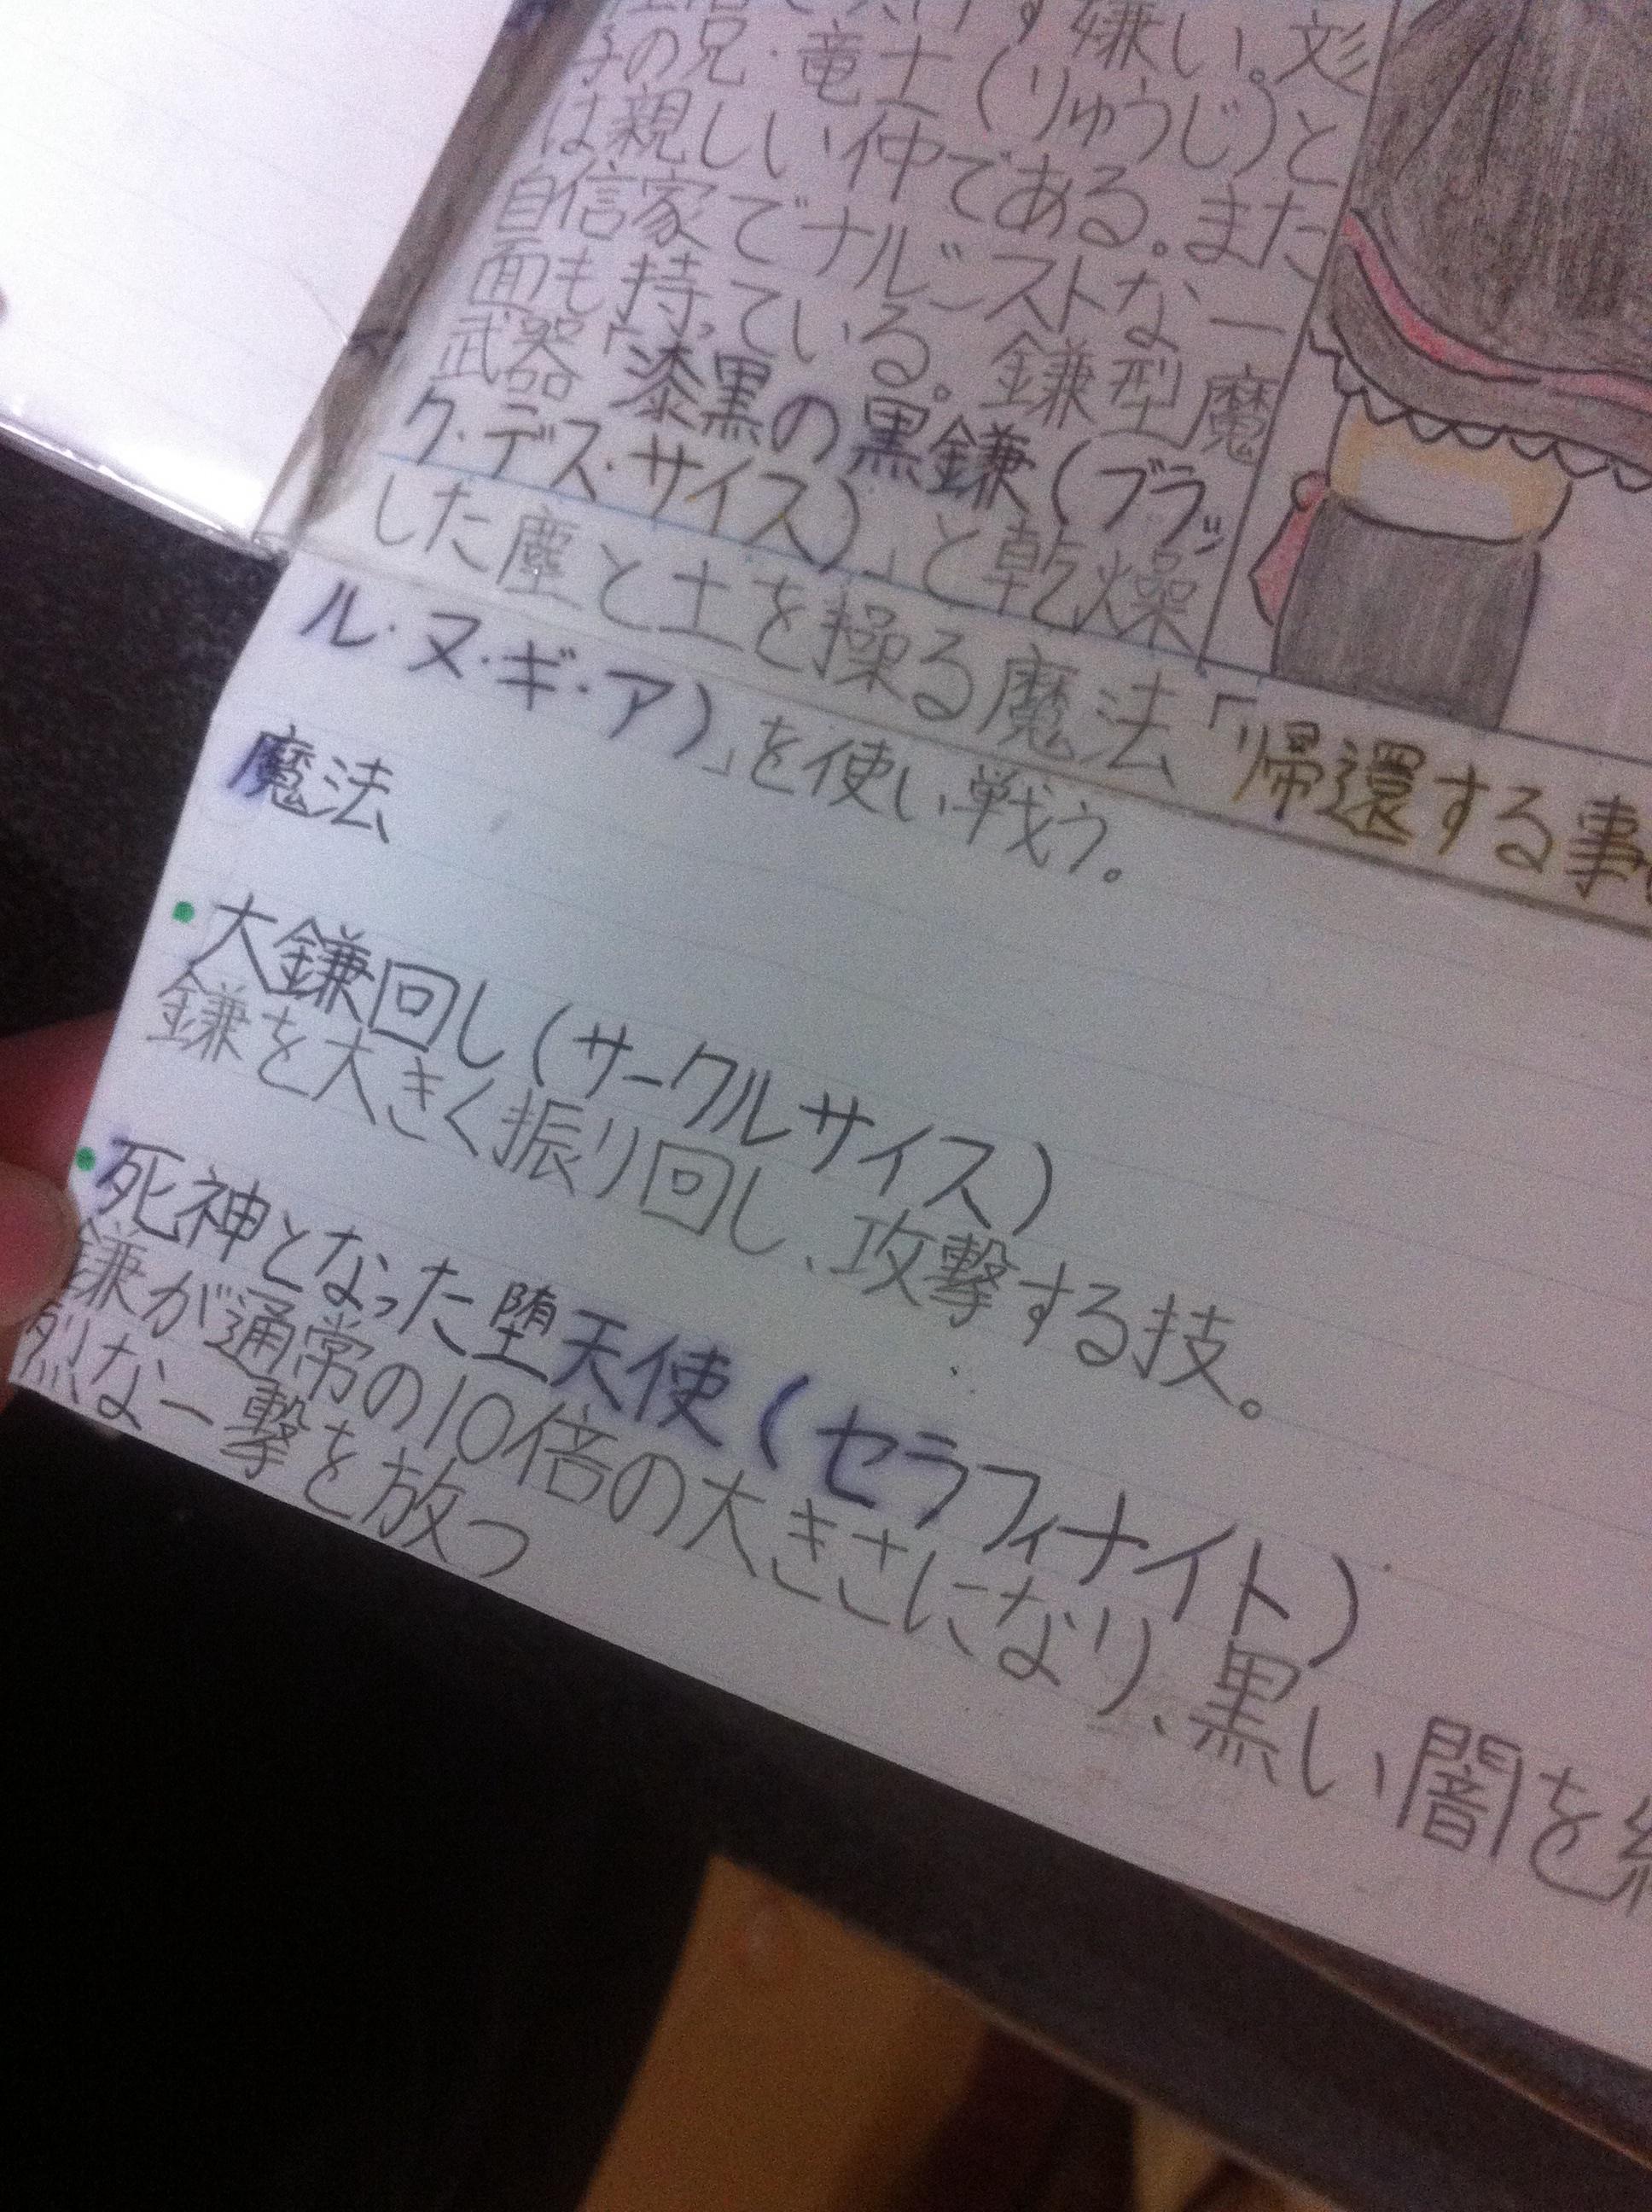 す嫌い。彣
子の兄・竜士(りゅうじ)と
は親しい仲である。また
自信家でナルシストな一
面も持っている。鎌型魔
武器「漆黒の黒鎌(ブラッ
ク・デス・サイス)」と乾燥
した塵と土を操る魔法「帰還する事
ル・ヌ・ギ・ア)」を使い戦う。
魔法
・大鎌回し(サークルサイス)
鎌を大きく振り回し、攻撃する技。
・死神となった堕天使(セラフィナイト)
鎌が通常の10倍の大きさになり、黒い闇を
烈な一撃を放つ